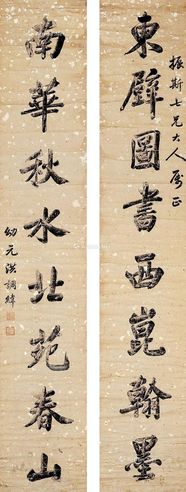 振斯七兄大人属正
東壁圖書西崑翰墨
南華秋水北苑春山
幼元洪調緯